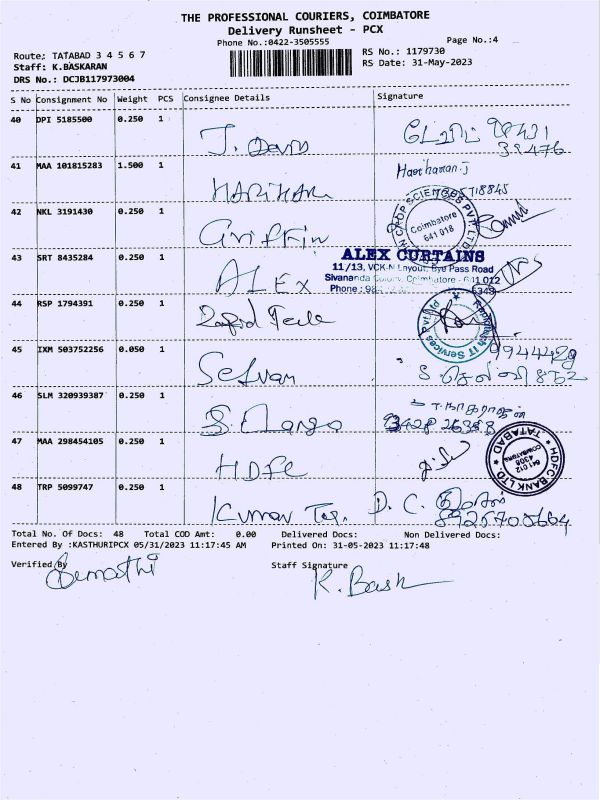 THE PROFESSIONAL COURIERS, COIMBATORE
Delivery Runsheet - PCX
Phone No.:0422-3505555
Page No.:4
Route: TATABAD 3 4 5 6 7
RS No.: 1179730
Staff: K.BASKARAN
RS Date: 31-May-2023
DRS No.: DCJB117973004
S No Consignment No Weight PCS Consignee Details Signature
40 DPI 5185500 0.250 1
J.
38476
41 MAA 101815283 1.500 1
HARIHARAN
Hariharan.J
42 NKL 3191430 0.250 1
Griffin
CROP SCIENCES PVT LTD
Coimbatore
641 018
43 SRT 8435284 0.250 1
ALEX
ALEX CURTAINS
11/13, VCK-N Layout, Bye Pass Road
Sivananda Colony, Coimbatore - 641 012
Phone :
44 RSP 1794391 0.250 1
IT Services Pvt Ltd
45 IXM 503752256 0.050 1
Selvan
46 SLM 320939387 0.250 1
த.நாகராஜன்
47 MAA 298454105 0.250 1
HDFC
HDFC BANK LTD.
TATABAD
641 012
COIMBATORE
48 TRP 5099747 0.250 1
Kumar
D. C.
8925700664
Total No. Of Docs: 48 Total COD Amt: 0.00 Delivered Docs: Non Delivered Docs:
Entered By :KASTHURIPCX 05/31/2023 11:17:45 AM Printed On: 31-05-2023 11:17:48
Verified By
Staff Signature
K. Bask